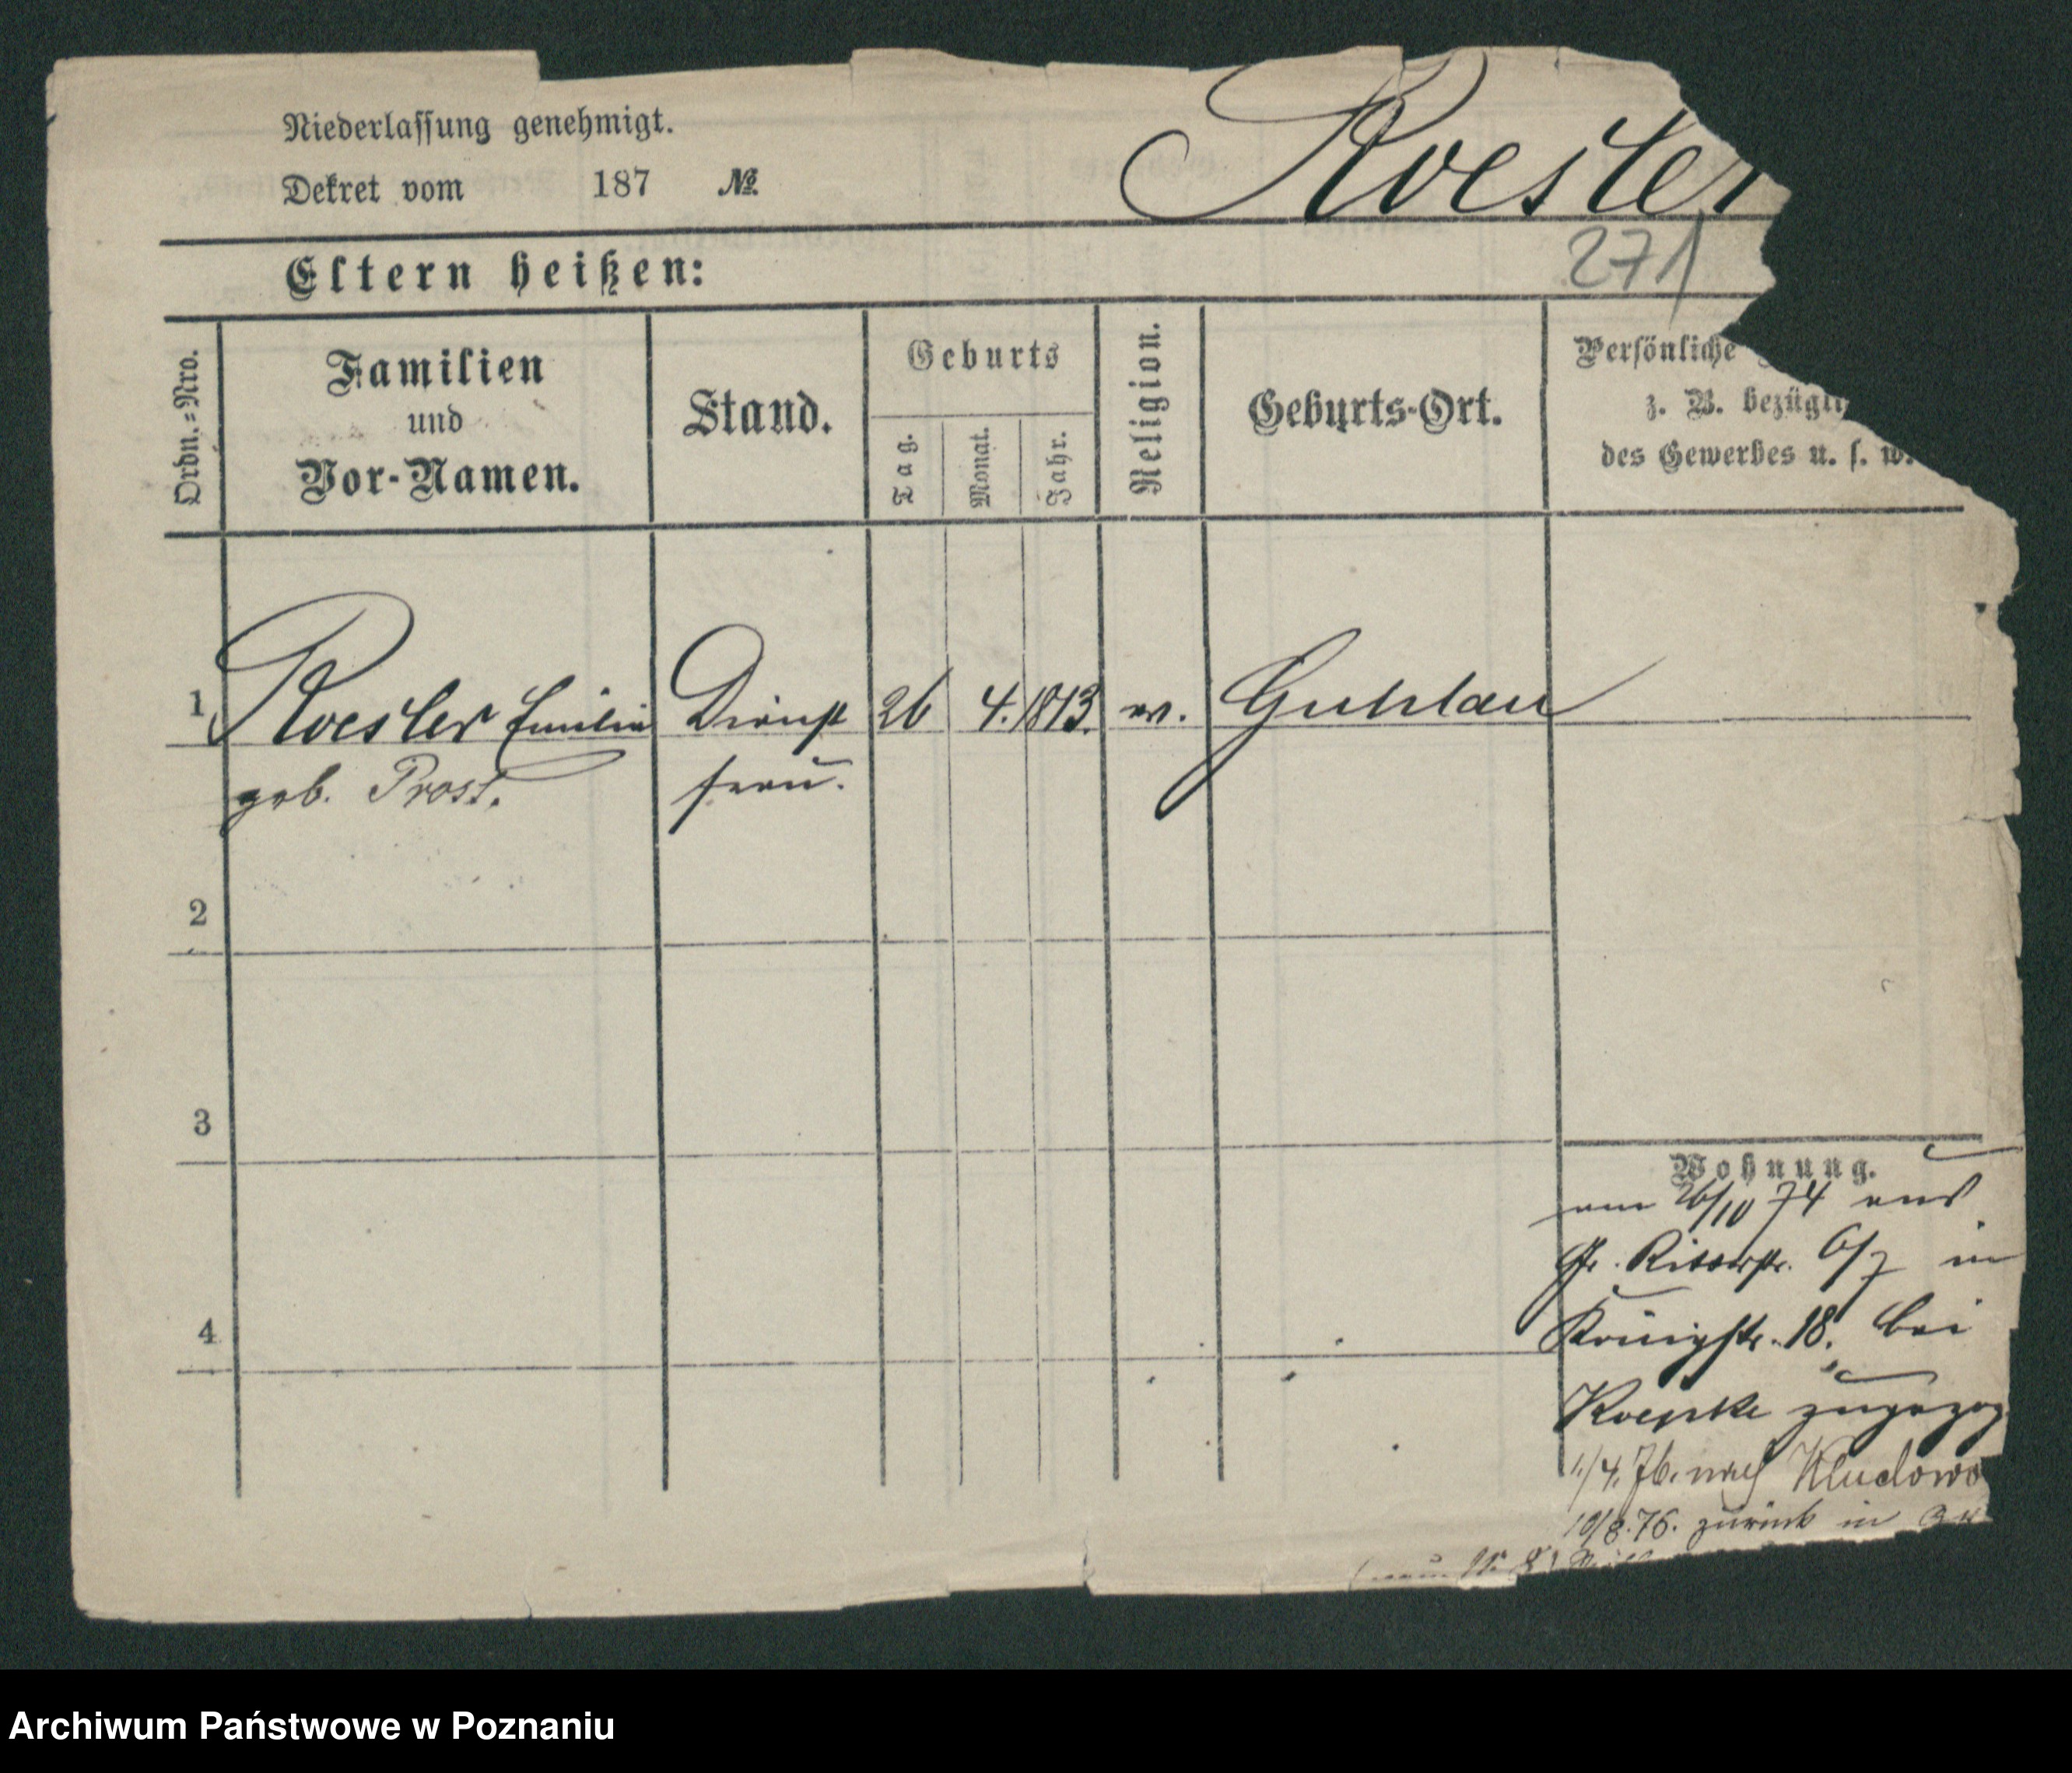 Niederlassung genehmigt.
Dekret vom 187 №
Roesler
271
Eltern heißen:
Ordn.=Nro.
Familien
und
Vor-Namen.
Stand.
Geburts
Tag.
Monat.
Jahr.
Religion.
Geburts-Ort.
Persönliche
z. B. bezügli
des Gewerbes u. s. w.
1 Roesler Emilie Dienst 26 4. 1813. ev. Guhlau
geb. Prost. frau.
2
3
4
Wohnung.
am 26/10 74 aus
Gr. Ritterstr. 6/7 in
Königstr. 18. bei
Koepke zugezog
1./4. 76. nach Kludowo
10/8. 76. zurück in
Archiwum Państwowe w Poznaniu